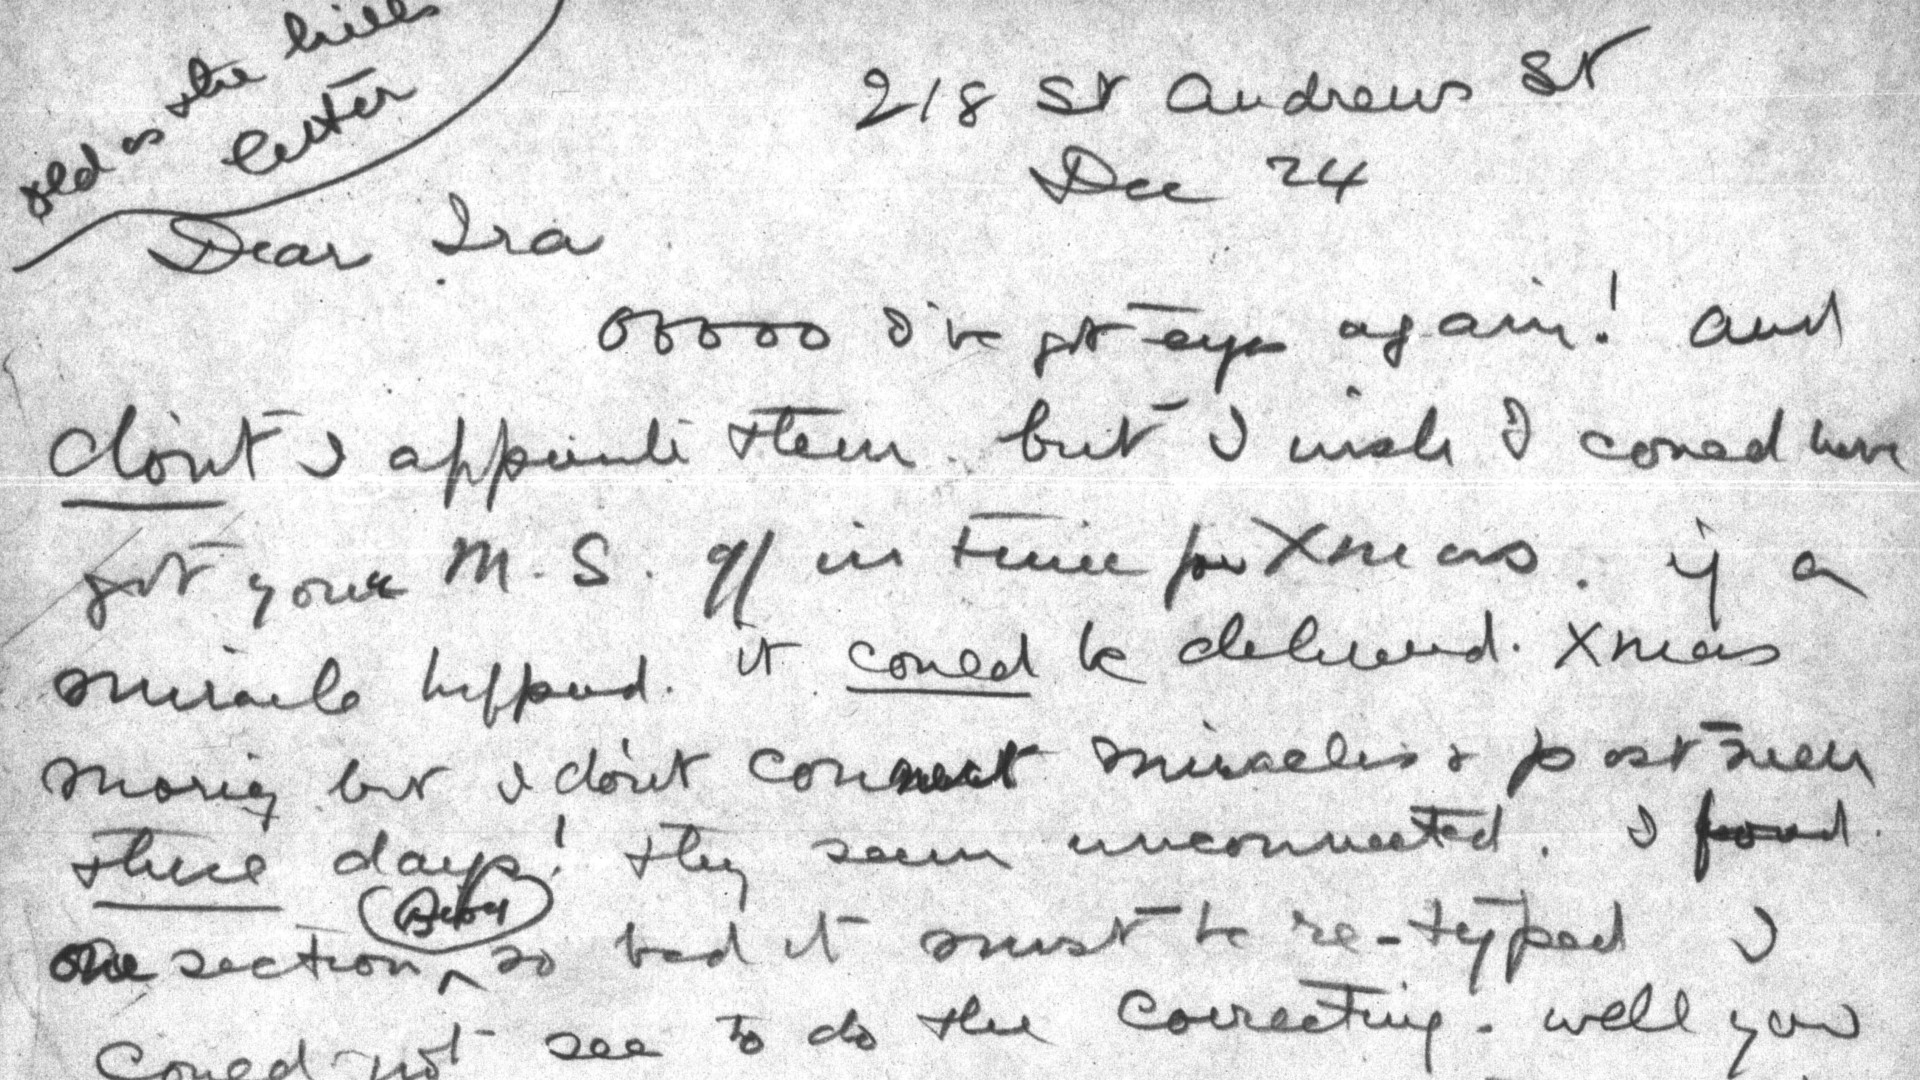 old as the hills
letter
218 St Andrews St
Dec 24
Dear Ira
Ooooo I've got eyes again! and
don't I appreciate them. but I wish I could have
got your M.S. off in time for Xmas. if a
miracle happened. it could be delivered. Xmas
morning but I don't connect miracles & postmen
these days! they seem unconnected. I found
one section so bad it must be re-typed I
could not see to do the correcting. well you